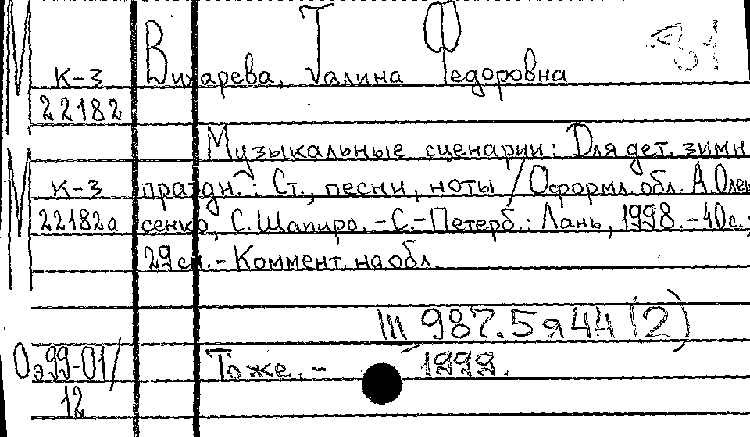 М К-3 Вихарева, Галина Федоровна
22182
Музыкальные сценарии: Для дет. зимн
М К-3 праздн.: Ст., песни, ноты / Оформл. обл. А.Олей
22182а сенко, С.Шапиро. - С.-Петерб.: Лань, 1998. - 40с.;
29 см. - Коммент. на обл.
Ш 987.5я44 (2)
Оэ99-01/ То же. - 1999.
12